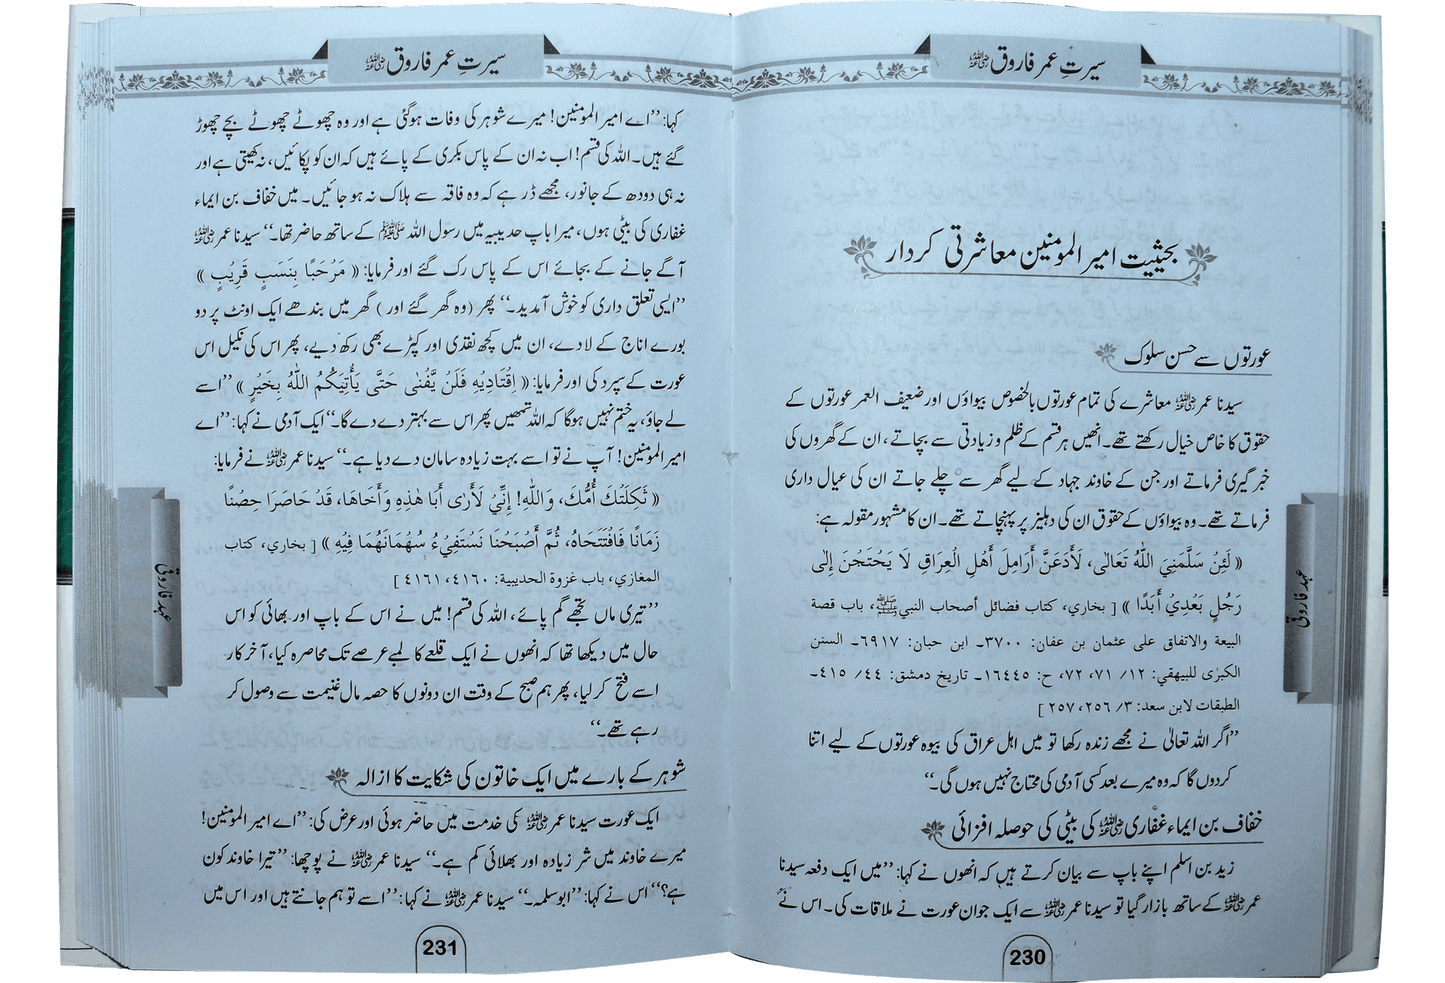 سیرتِ عمر فاروق رضی اللہ عنہ
بحیثیت امیر المومنین معاشرتی کردار
عورتوں سے حسن سلوک
سیدنا عمر رضی اللہ عنہ معاشرے کی تمام عورتوں بالخصوص بیواؤں اور ضعیف العمر عورتوں کے
حقوق کا خاص خیال رکھتے تھے۔ انھیں ہر قسم کے ظلم و زیادتی سے بچاتے، ان کے گھروں کی
خبر گیری فرماتے اور جن کے خاوند جہاد کے لیے گھر سے چلے جاتے ان کی عیال داری
فرماتے تھے۔ وہ بیواؤں کے حقوق ان کی دہلیز پر پہنچاتے تھے۔ ان کا مشہور مقولہ ہے:
« لَئِنْ سَلَّمَنِيَ اللّٰهُ تَعَالٰى، لَأَدَعَنَّ أَرَامِلَ أَهْلِ الْعِرَاقِ لَا يَحْتَجْنَ إِلٰى
رَجُلٍ بَعْدِيْ أَبَدًا » [ بخاري، كتاب فضائل أصحاب النبي ﷺ، باب قصة
البيعة والاتفاق على عثمان بن عفان: ٣٧٠٠۔ ابن حبان: ٦٩١٧۔ السنن
الكبرٰى للبيهقي: ١٢/ ٧١، ٧٢، ح: ١٦٤٤٥۔ تاريخ دمشق: ٤٤/ ٤١٥۔
الطبقات لابن سعد: ٣/ ٢٥٦، ٢٥٧ ]
’’اگر اللہ تعالیٰ نے مجھے زندہ رکھا تو میں اہل عراق کی بیوہ عورتوں کے لیے اتنا
کردوں گا کہ وہ میرے بعد کسی آدمی کی محتاج نہیں ہوں گی۔‘‘
خفاف بن ایماء غفاری رضی اللہ عنہ کی بیٹی کی حوصلہ افزائی
زید بن اسلم اپنے باپ سے بیان کرتے ہیں کہ انھوں نے کہا: ’’میں ایک دفعہ سیدنا
عمر رضی اللہ عنہ کے ساتھ بازار گیا تو سیدنا عمر رضی اللہ عنہ سے ایک جوان عورت نے ملاقات کی۔ اس نے
230
عہد فاروقی
سیرتِ عمر فاروق رضی اللہ عنہ
کہا: ’’اے امیر المومنین! میرے شوہر کی وفات ہوگئی ہے اور وہ چھوٹے چھوٹے بچے چھوڑ
گئے ہیں۔ اللہ کی قسم! اب نہ ان کے پاس بکری کے پائے ہیں کہ ان کو پکائیں، نہ کھیتی ہے اور
نہ ہی دودھ کے جانور، مجھے ڈر ہے کہ وہ فاقہ سے ہلاک نہ ہو جائیں۔ میں خفاف بن ایماء
غفاری کی بیٹی ہوں، میرا باپ حدیبیہ میں رسول اللہ ﷺ کے ساتھ حاضر تھا۔‘‘ سیدنا عمر رضی اللہ عنہ
آگے جانے کے بجائے اس کے پاس رک گئے اور فرمایا: « مَرْحَبًا بِنَسَبٍ قَرِيْبٍ »
’’ایسی تعلق داری کو خوش آمدید۔‘‘ پھر (وہ گھر گئے اور) گھر میں بندھے ایک اونٹ پر دو
بورے اناج کے لادے، ان میں کچھ نقدی اور کپڑے بھی رکھ دیے، پھر اس کی نکیل اس
عورت کے سپرد کی اور فرمایا: « اِقْتَادِيْهِ فَلَنْ يَّفْنٰى حَتّٰى يَأْتِيَكُمُ اللّٰهُ بِخَيْرٍ » ’’اسے
لے جاؤ، یہ ختم نہیں ہوگا کہ اللہ تمھیں پھر اس سے بہتر دے دے گا۔‘‘ ایک آدمی نے کہا: ’’اے
امیر المومنین! آپ نے تو اسے بہت زیادہ سامان دے دیا ہے۔‘‘ سیدنا عمر رضی اللہ عنہ نے فرمایا:
« ثَكِلَتْكَ أُمُّكَ، وَاللّٰهِ! إِنِّيْ لَأَرٰى أَبَا هٰذِهِ وَ أَخَاهَا، قَدْ حَاصَرَا حِصْنًا
زَمَانًا فَافْتَتَحَاهُ، ثُمَّ أَصْبَحْنَا نَسْتَفِيْءُ سُهْمَانَهُمَا فِيْهِ » [ بخاري، كتاب
المغازي، باب غزوة الحديبية: ٤١٦٠، ٤١٦١ ]
’’تیری ماں تجھے گم پائے، اللہ کی قسم! میں نے اس کے باپ اور بھائی کو اس
حال میں دیکھا تھا کہ انھوں نے ایک قلعے کا لمبے عرصے تک محاصرہ کیا، آخر کار
اسے فتح کر لیا، پھر ہم صبح کے وقت ان دونوں کا حصہ مال غنیمت سے وصول کر
رہے تھے۔‘‘
شوہر کے بارے میں ایک خاتون کی شکایت کا ازالہ
ایک عورت سیدنا عمر رضی اللہ عنہ کی خدمت میں حاضر ہوئی اور عرض کی: ’’اے امیر المومنین!
میرے خاوند میں شر زیادہ اور بھلائی کم ہے۔‘‘ سیدنا عمر رضی اللہ عنہ نے پوچھا: ’’تیرا خاوند کون
ہے؟‘‘ اس نے کہا: ’’ابوسلمہ۔‘‘ سیدنا عمر رضی اللہ عنہ نے کہا: ’’اسے تو ہم جانتے ہیں اور اس میں
231
عہد فاروقی